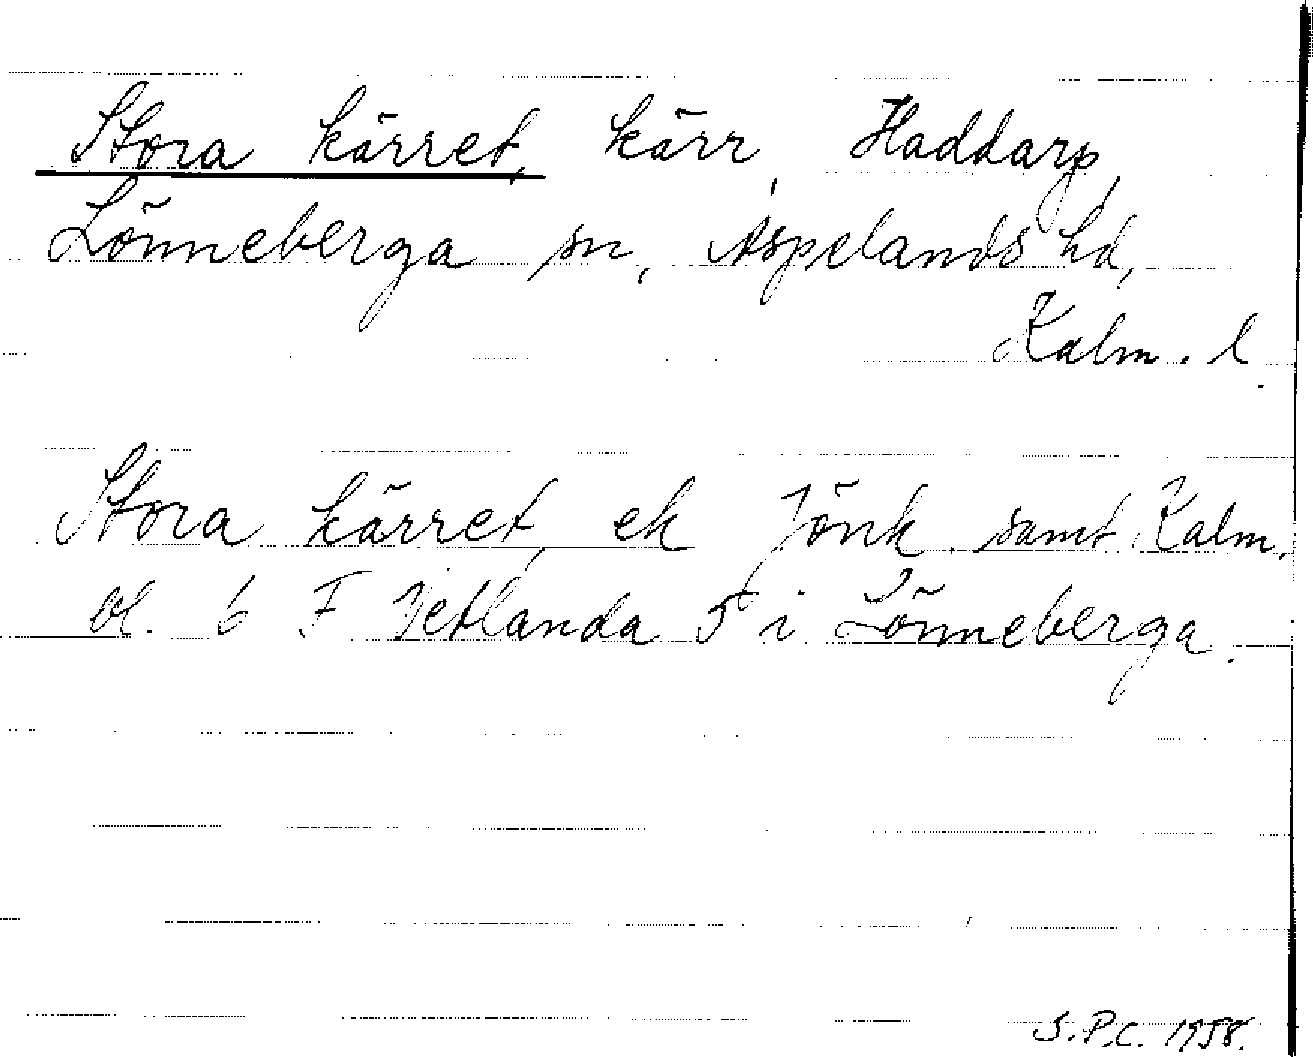 Stora kärret, kärr, Haddarp,
Lönneberga sn, Aspelands hd,
Kalm. l.
Stora kärret, ek Jönk. samt Kalm.
bl. 6 F Vetlanda 5 i Lönneberga.
S.P.C. 1958.